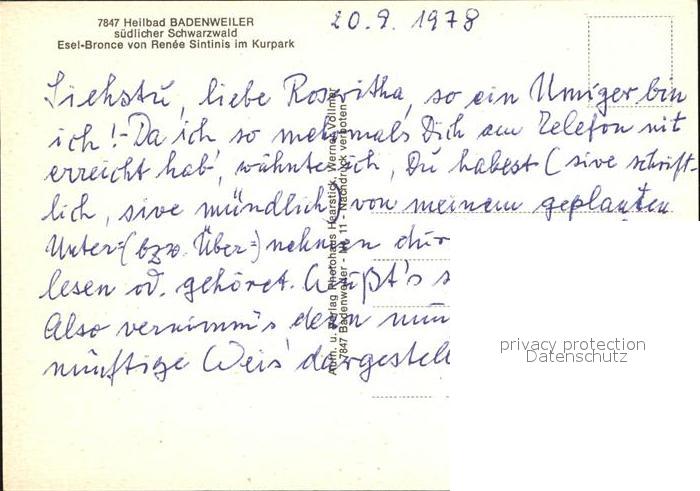 7847 Heilbad BADENWEILER
südlicher Schwarzwald
Esel-Bronce von Renée Sintinis im Kurpark
20.9.1978
Siehstu, liebe Roswitha, so ein bin
ich!-Da ich so mehrmals Dich am Telefon nit
erreicht hab', wähnte ich, Du habest (sive schrift-
lich, sive mündlich) von meinem geplanten
Unter=(bzw. Über=)nehmen dur
lesen od. gehöret. Wußt's s
Also vernimm's denn nun
nünftige Weis' dargestell
Aufn. u. Verlag Photohaus Haarstick, Werner Vollmer
7847 Badenweiler - Nr. 11 - Nachdruck verboten
privacy protection
Datenschutz